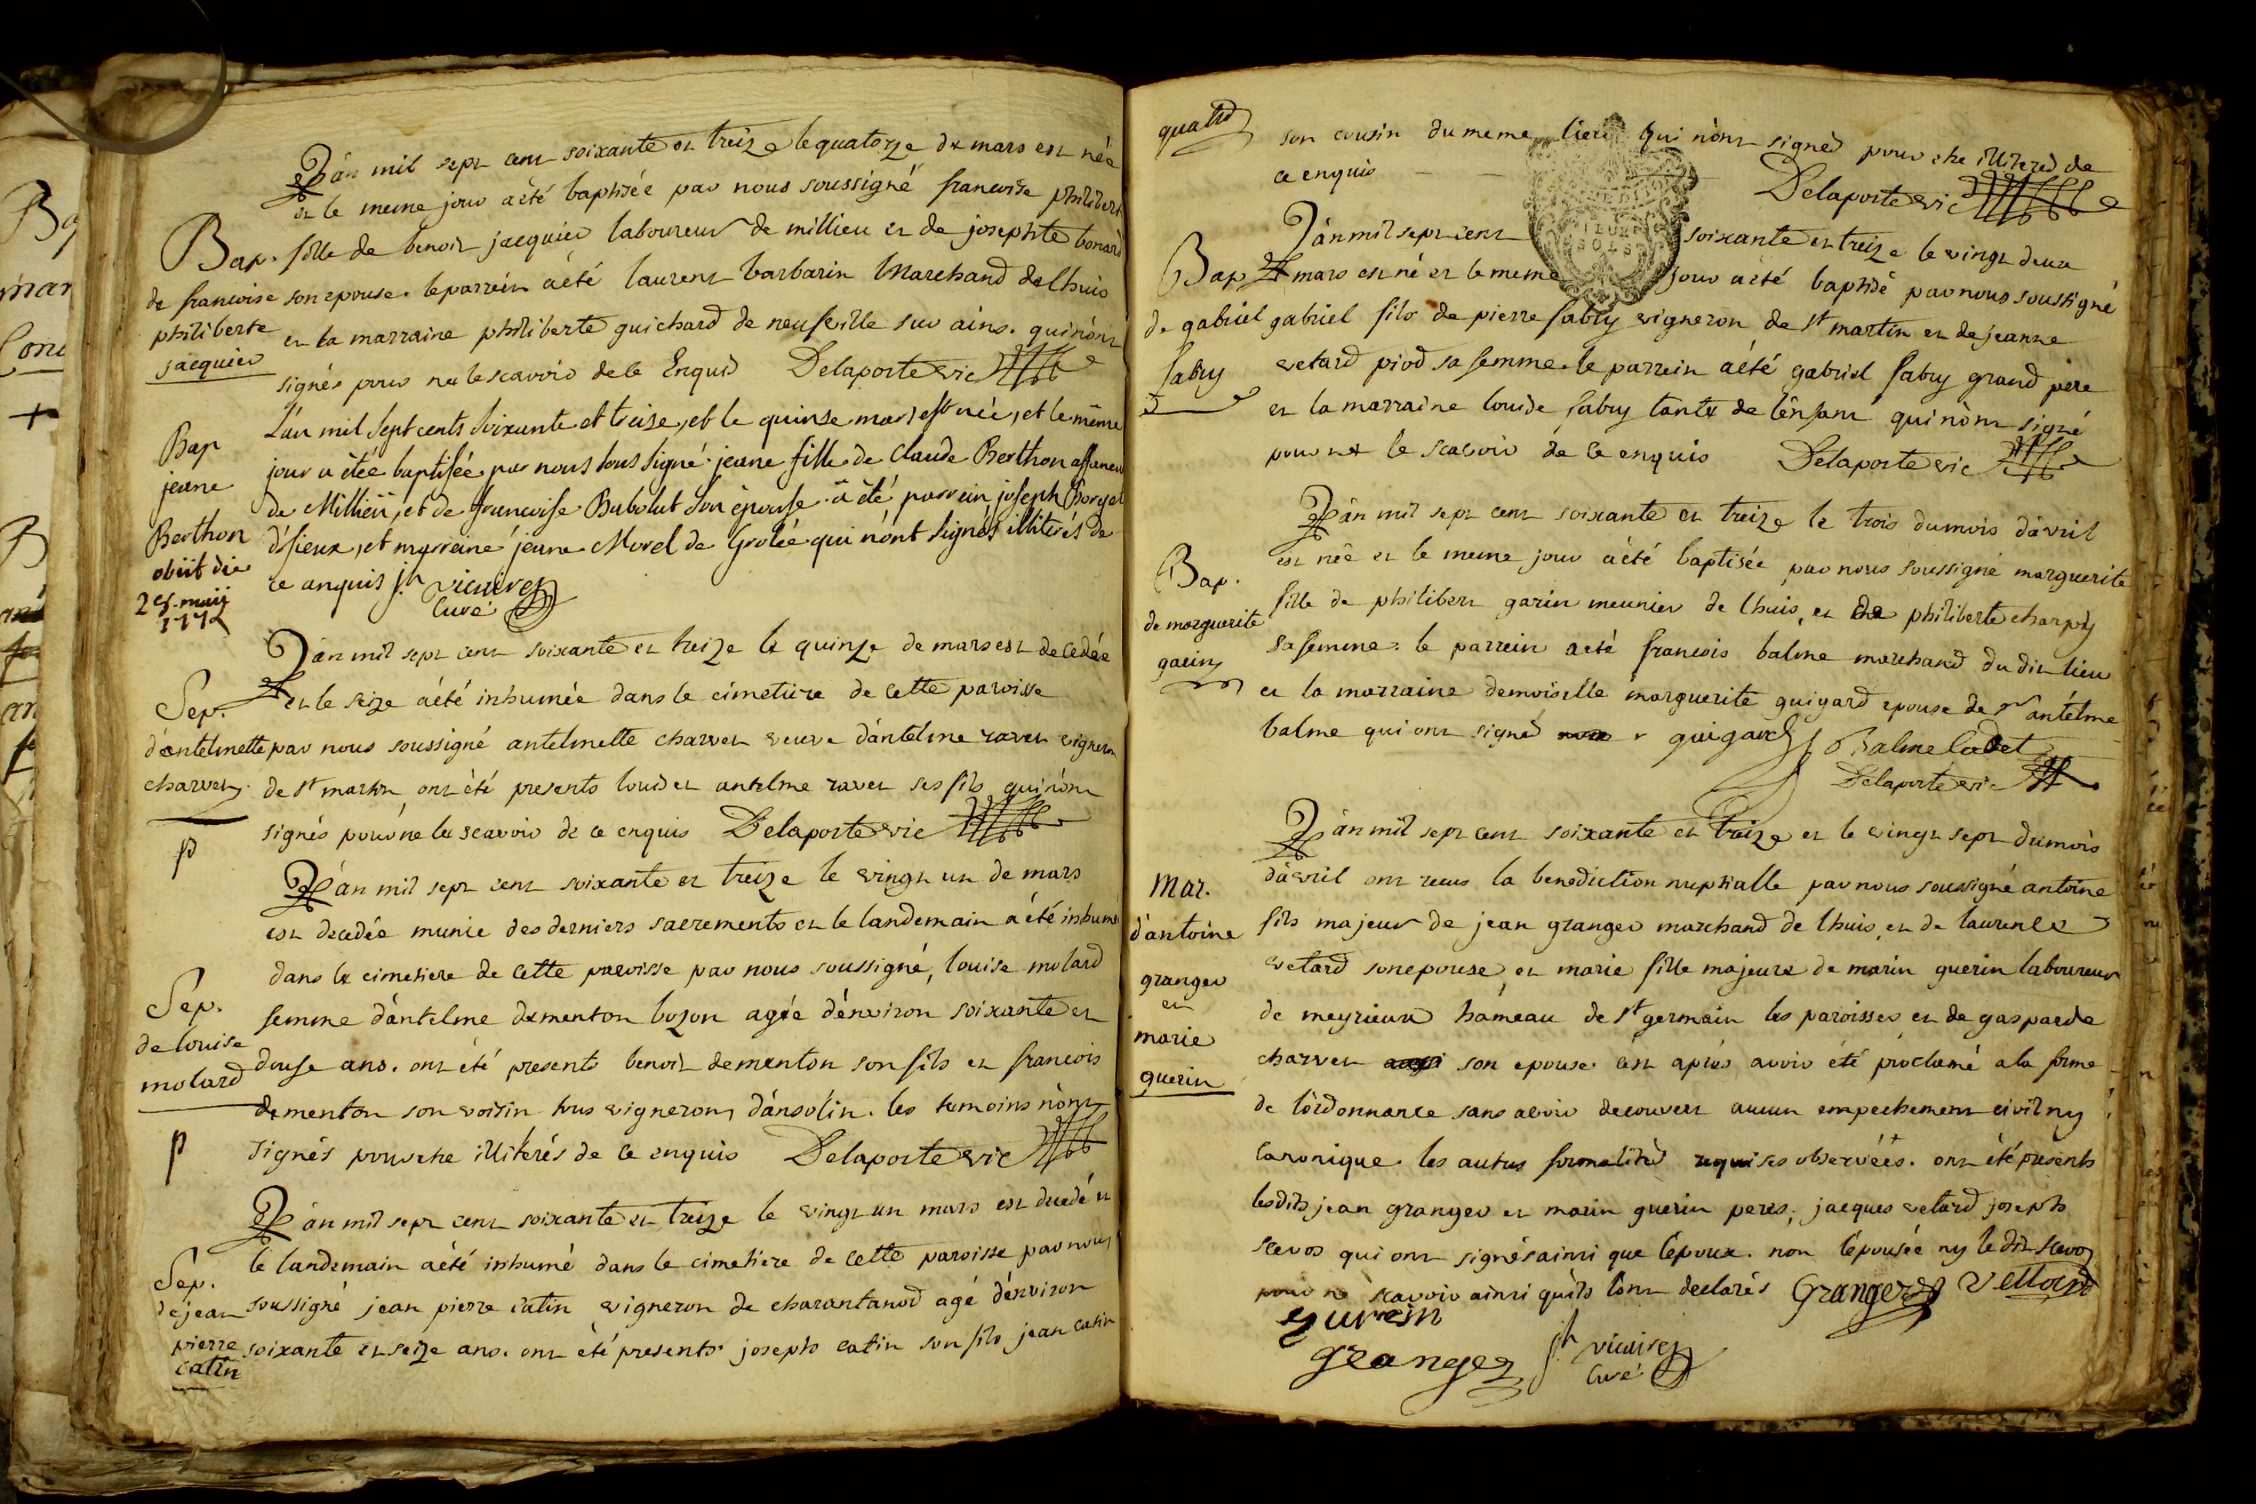 L'an mil sept cent soixante et treize le quatorze de mars est née
et le meme jour a été baptisée par nous soussigné francoise philiberte
Bap. fille de benoit jacquier laboureur de millieu et de josephte bonard
de francoise son epouse. le parrein a été laurent barbarin Marchand de lhuis
philiberte et la marraine philiberte guichard de neufville sur ains. qui n'ont
jacquier
signés pour ne le scavoir de ce Enquis Delaporte vic
L'an mil sept cents soixante et treise, et le quinse mars est née, et le même
Bap jour a étée baptisée par nous sous signé jeane fille de Claude Berthon
jeane de Millieu, et de francoise Bubolut son épouse a été parrein joseph Borget
Berthon d'sieux, et marreine jeane Morel de Grolée qui n'ont signés illiterés de
obiit die ce anquis jh vicaire
Curé
maii
L'an mil sept cent soixante et treize le quinze de mars est decedée
Sep. et le seize a été inhumée dans le cimetiere de cette paroisse
d'antelmette par nous soussigné antelmette charvet veuve d'antelme ravet vigneron
charvet. de st martin, ont été presents louis et antelme ravet ses fils qui n'ont
signés pour ne le scavoir de ce enquis Delaporte vic
p
L'an mil sept cent soixante et treize le vingt un de mars
est decedée munie des derniers sacrements et le landemain a été inhumé
dans le cimetiere de cette paroisse par nous soussigné, louise molard
Sep. femme d'antelme dementon bozon agée d'environ soixante et
de louise douse ans. ont été presents benoit dementon son fils et francois
molard
dementon son voisin tous vignerons d'ansolin. les temoins n'ont
p signés pour etre illiterés de ce enquis Delaporte vic
L'an mil sept cent soixante et treize le vingt un mars est decedé et
le landemain a été inhumé dans le cimetiere de cette paroisse par nous
Sep.
de jean soussigné jean pierre catin vigneron de charantanod agé d'environ
pierre soixante et seize ans. ont été presents joseph catin son fils jean catin
catin
quatre
son cousin du meme lieu qui n'ont signés pour etre illiterés de
ce enquis Delaporte vic
L'an mil sept cent soixante et treize le vingt deux
Bap mars est né et le meme jour a été baptisé par nous soussigné
de gabriel gabriel fils de pierre fabry vigneron de st martin et de jeanne
fabry vetard piod sa femme. le parrein a été gabriel fabry grand pere
et la marraine louise fabry tante de l'enfant qui n'ont signé
pour ne le scavoir de ce enquis Delaporte vic
L'an mil sept cent soixante et treize le trois du mois d'avril
est née et le meme jour a été baptisée par nous soussigné marguerite
Bap.
de marguerite fille de philibert garin meunier de lhuis, et de philiberte charpy
garin sa femme. le parrein a été francois balme marchand du dit lieu
et la marraine demoiselle marguerite guigard epouse de sr antélme
balme qui ont signé guigard Balme Cadet
Delaporte vic
L'an mil sept cent soixante et treize et le vingt sept du mois
Mar. d'avril ont recus la benediction nuptialle par nous soussigné antoine
d'antoine fils majeur de jean granger marchand de lhuis, et de laurence
granger vetard son epouse, et marie fille majeure de marin guerin laboureur
et de meyrieux hameau de st germain les paroisses et de gasparde
marie charvet son epouse. c'est aprés avoir été proclamé a la forme
guerin de l'ordonnance sans avoir decouvert aucun empechement civil ny
Canonique. les autres formalités requises observées. ont été présents
lesdits jean granger et marin guerin peres, jacques vetard joseph
scevoz qui ont signés ainsi que l'époux. non l'épousée ny le dit scevoz
pour ne scavoir ainsi qu'ils l'ont declarés Granger Vettard
gurein
granger jh vicaire
Curé